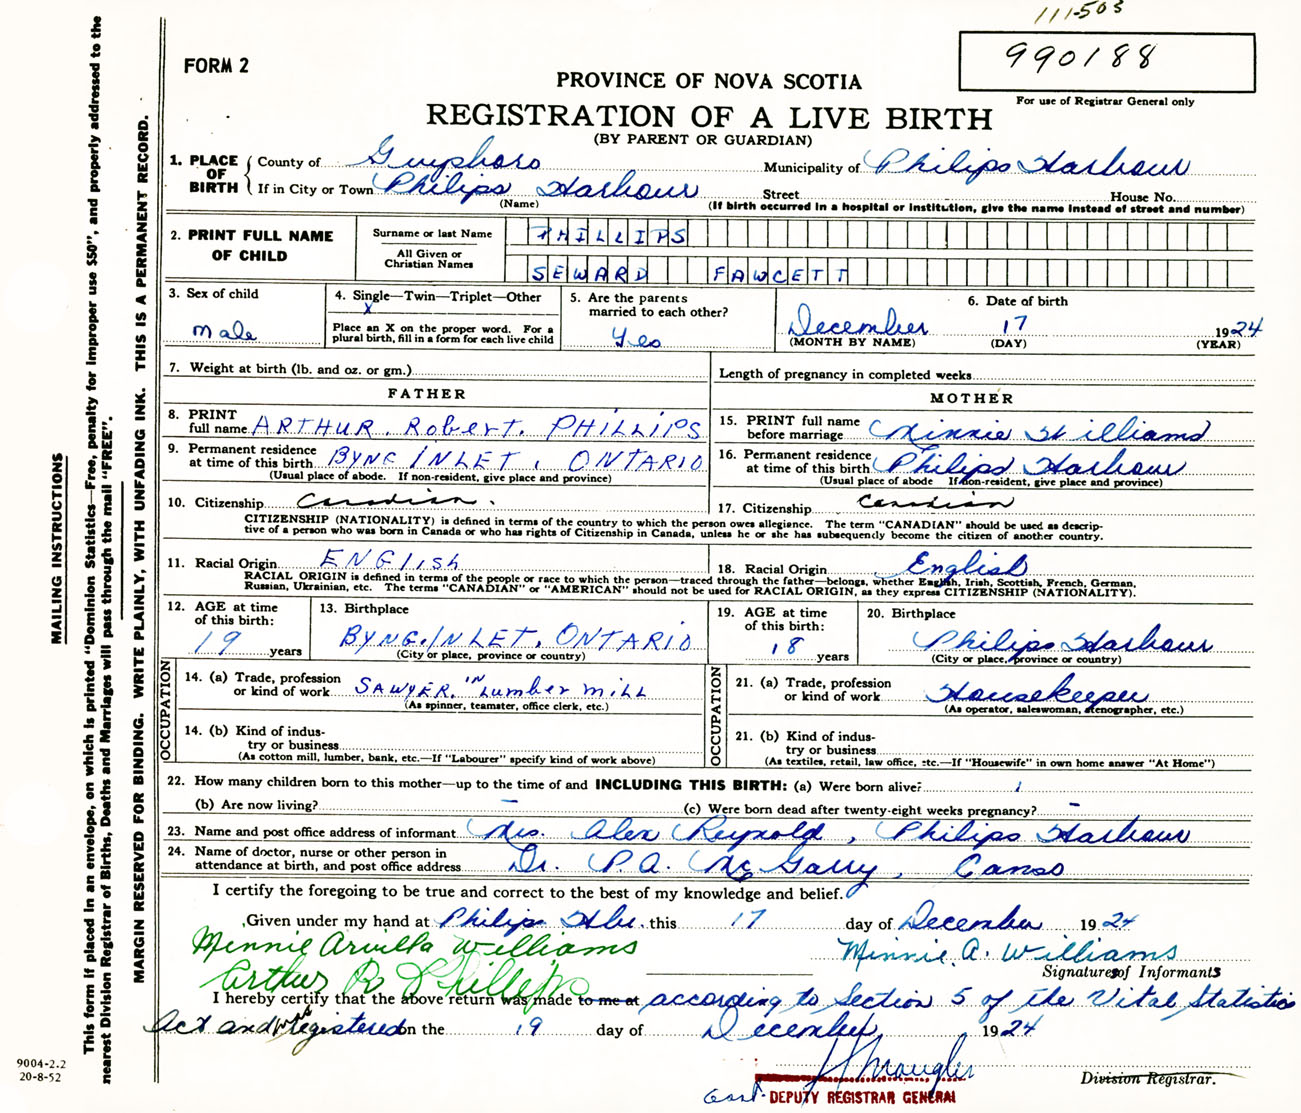 111-503
990188
FORM 2
For use of Registrar General only
PROVINCE OF NOVA SCOTIA
REGISTRATION OF A LIVE BIRTH
(BY PARENT OR GUARDIAN)
1. PLACE OF BIRTH
County of Guysboro Municipality of Philips Harbour
If in City or Town Philips Harbour Street House No.
(Name) (If birth occurred in a hospital or institution, give the name instead of street and number)
2. PRINT FULL NAME OF CHILD
Surname or last Name PHILLIPS
All Given or Christian Names SEWARD FAWCETT
3. Sex of child
male
4. Single—Twin—Triplet—Other
X
Place an X on the proper word. For a
plural birth, fill in a form for each live child
5. Are the parents
married to each other?
Yes
6. Date of birth
December 17 1924
(MONTH BY NAME) (DAY) (YEAR)
7. Weight at birth (lb. and oz. or gm.)
Length of pregnancy in completed weeks
FATHER
8. PRINT
full name ARTHUR. Robert. PHILLIPS
9. Permanent residence
at time of this birth BYNG INLET, ONTARIO
(Usual place of abode. If non-resident, give place and province)
10. Citizenship Canadian.
MOTHER
15. PRINT full name
before marriage Minnie Williams
16. Permanent residence
at time of this birth Philips Harbour
(Usual place of abode If non-resident, give place and province)
17. Citizenship Canadian
CITIZENSHIP (NATIONALITY) is defined in terms of the country to which the person owes allegiance. The term "CANADIAN" should be used as descrip-
tive of a person who was born in Canada or who has rights of Citizenship in Canada, unless he or she has subsequently become the citizen of another country.
11. Racial Origin ENGlish
18. Racial Origin English
RACIAL ORIGIN is defined in terms of the people or race to which the person—traced through the father—belongs, whether English, Irish, Scottish, French, German,
Russian, Ukrainian, etc. The terms "CANADIAN" or "AMERICAN" should not be used for RACIAL ORIGIN, as they express CITIZENSHIP (NATIONALITY).
12. AGE at time
of this birth:
19 years
13. Birthplace
BYNG. INLET, ONTARIO
(City or place, province or country)
19. AGE at time
of this birth:
18 years
20. Birthplace
Philips Harbour
(City or place, province or country)
OCCUPATION
14. (a) Trade, profession
or kind of work SAWYER. IN Lumber Mill
(As spinner, teamster, office clerk, etc.)
14. (b) Kind of indus-
try or business
(As cotton mill, lumber, bank, etc.—If "Labourer" specify kind of work above)
OCCUPATION
21. (a) Trade, profession
or kind of work Housekeeper
(As operator, saleswoman, stenographer, etc.)
21. (b) Kind of indus-
try or business
(As textiles, retail, law office, etc.—If "Housewife" in own home answer "At Home")
22. How many children born to this mother—up to the time of and INCLUDING THIS BIRTH: (a) Were born alive? 1
(b) Are now living? – (c) Were born dead after twenty-eight weeks pregnancy? –
23. Name and post office address of informant Mrs. Alex Reynold, Philips Harbour
24. Name of doctor, nurse or other person in
attendance at birth, and post office address Dr. P.A. McGarry, Canso
I certify the foregoing to be true and correct to the best of my knowledge and belief.
Given under my hand at Philips Hbr. this 17 day of December 1924
Minnie Arvilla Williams
Minnie. A. Williams
Arthur R Phillips
Signatures of Informants
I hereby certify that the above return was made to me at according to Section 5 of the Vital Statistics
Act and was registered on the 19 day of December 1924
Division Registrar.
DEPUTY REGISTRAR GENERAL
MAILING INSTRUCTIONS
This form if placed in an envelope, on which is printed "Dominion Statistics—Free, penalty for improper use $50", and properly addressed to the
nearest Division Registrar of Births, Deaths and Marriages will pass through the mail "FREE".
MARGIN RESERVED FOR BINDING. WRITE PLAINLY, WITH UNFADING INK. THIS IS A PERMANENT RECORD.
9004-2.2
20-8-52